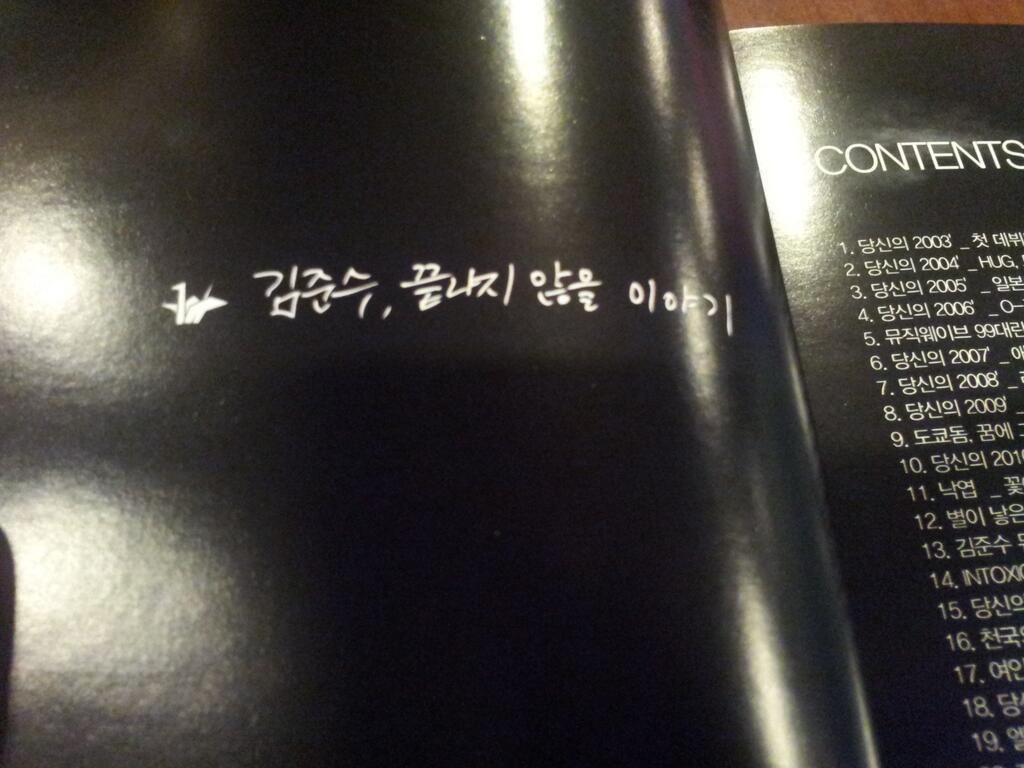 김준수, 끝나지 않을 이야기
CONTENTS
1. 당신의 2003' _ 첫 데뷔
2. 당신의 2004' _ HUG,
3. 당신의 2005' _ 일본
4. 당신의 2006' _ O-
5. 뮤직웨이브 99대란
6. 당신의 2007' _
7. 당신의 2008' _
8. 당신의 2009' _
9. 도쿄돔, 꿈에
10. 당신의 2010
11. 낙엽 _ 꽃
12. 별이 낳은
13. 김준수
14. INTOXIC
15. 당신의
16. 천국
17. 여인
18. 당신
19. 엘